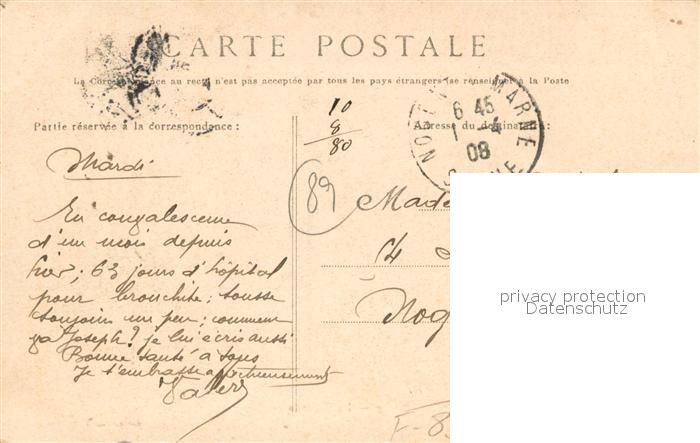 CARTE POSTALE
La Correspondance au recto n'est pas acceptée par tous les pays étrangers (se renseigner à la Poste
Partie réservée à la correspondance :
Adresse du destinataire :
NOGE MARNE
6 45
1 -4
08
10
8
80
Mardi
89
En convalescence
d'un mois depuis
hier; 63 jours d'hôpital
pour bronchite; tousse
toujours un peu; comment
ça Joseph? je lui écris aussi
Bonne santé à tous
Je t'embrasse affectueusement
Made
14
Nog
F-8
privacy protection
Datenschutz